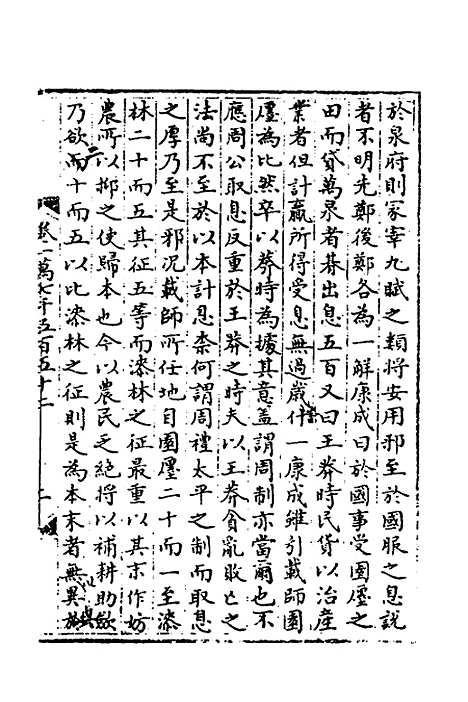 於泉府則冢宰九賦之類將安用邪至於國服之息說
者不明先鄭後鄭各為一解康成曰於國事受園廛之
田而貸萬泉者朞出息五百又曰王莽時民貸以治產
業者但計贏所得受息無過歲什一康成雖引載師園
廛為比然卒以莽時為據其意盖謂周制亦當爾也不
應周公取息反重於王莽之時夫以王莽貪亂敗亡之
法尚不至於以本計息柰何謂周禮太平之制而取息
之厚乃至是邪况載師所任地自園廛二十而一至漆
林二十而五其征五等而漆林之征最重以其末作妨
農所以抑之使歸本也今以農民乏絕將以補耕助斂
乃欲二十而五以比漆林之征則是為本末者無異
卷一萬七千五百五十二